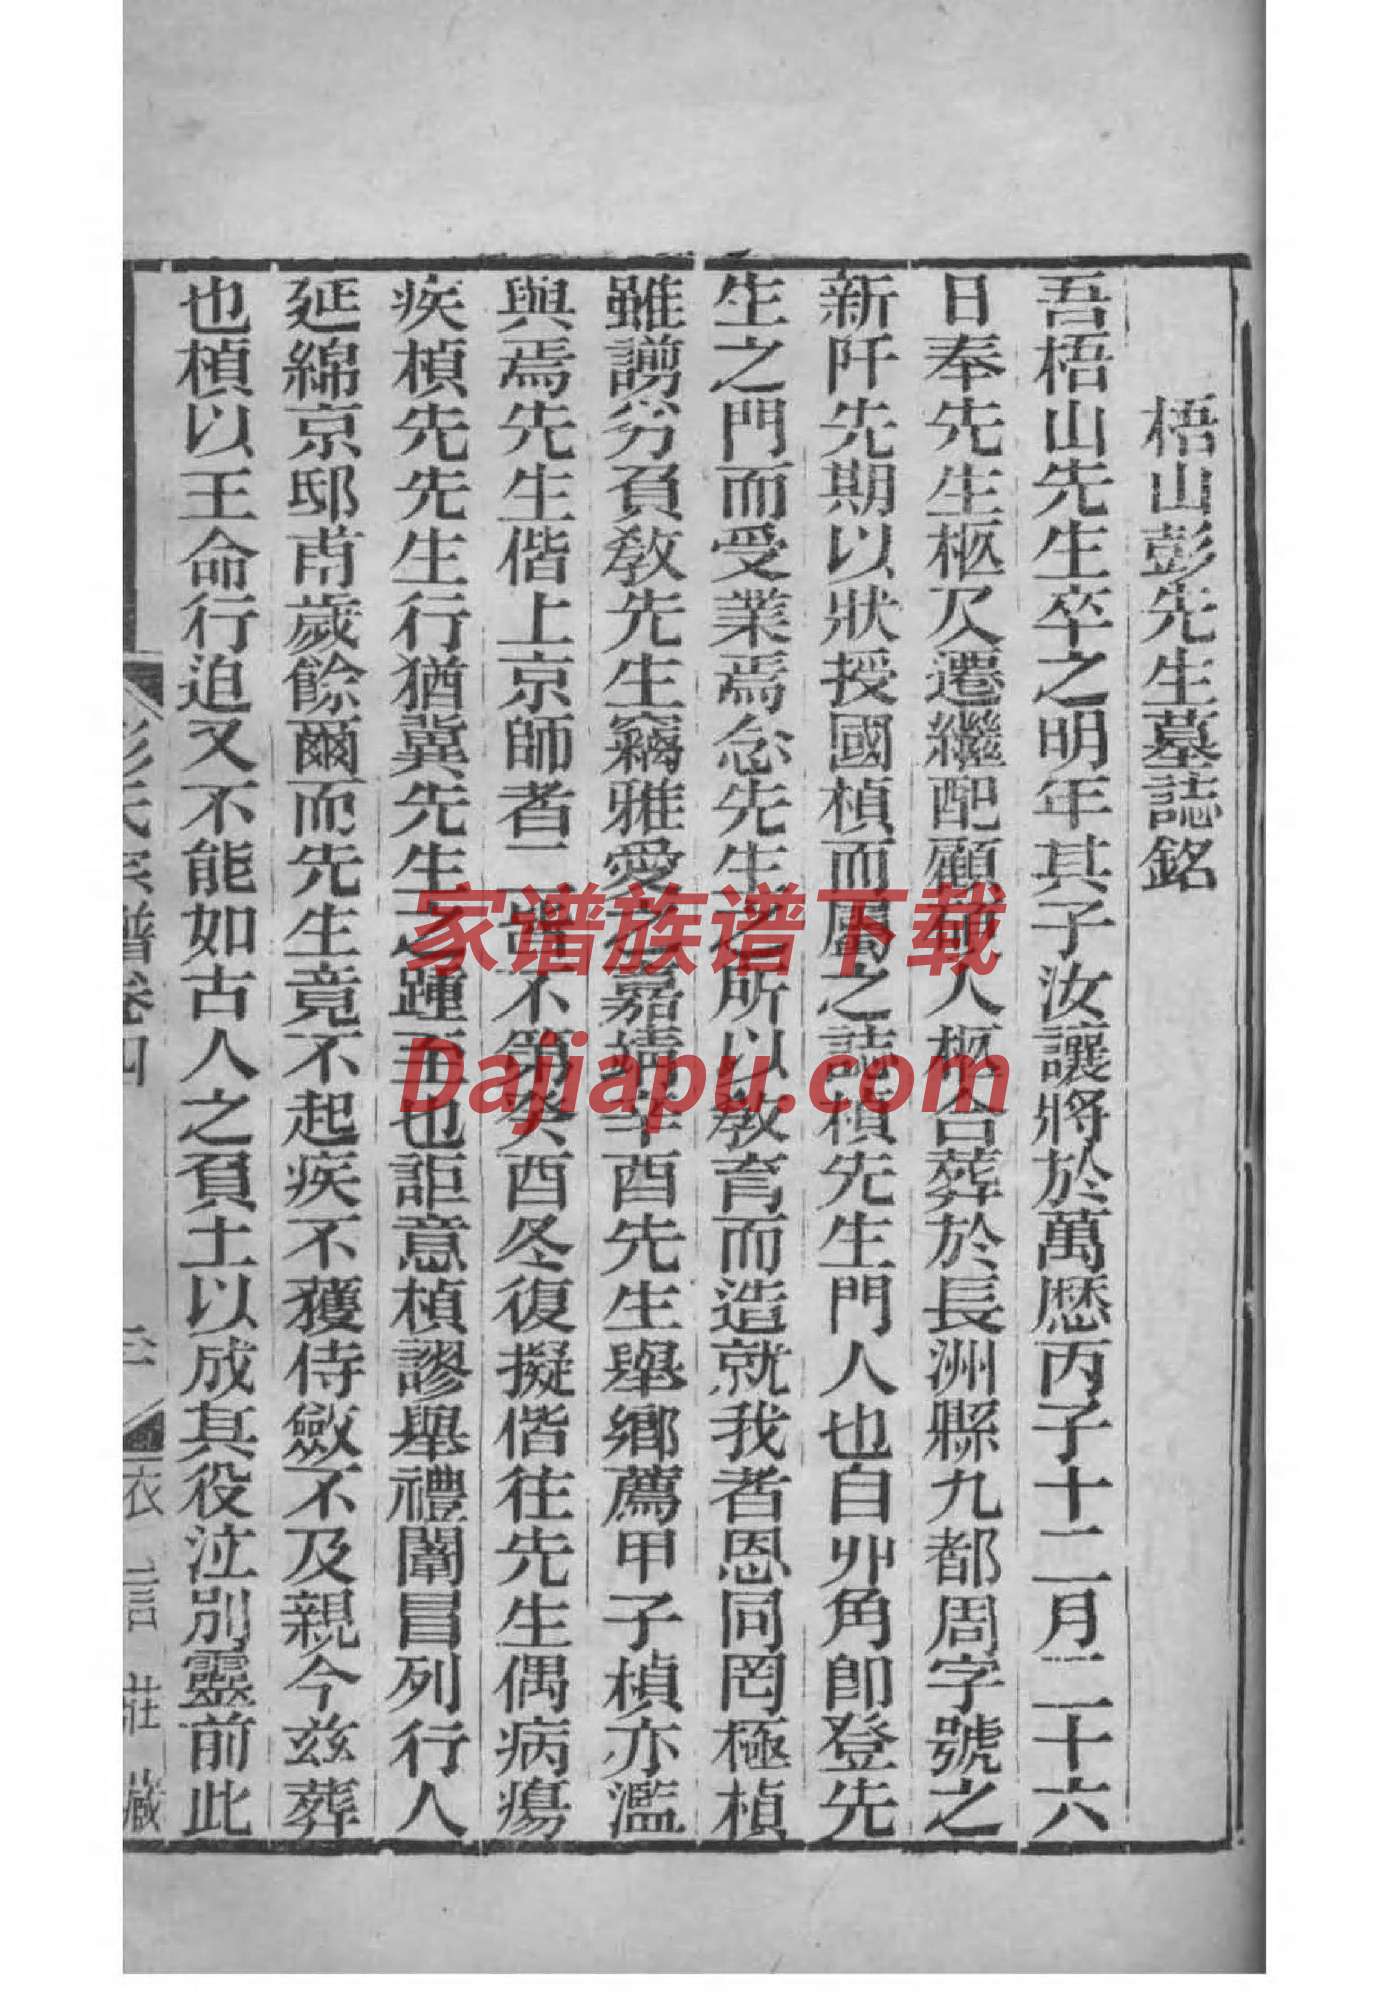 梧山彭先生墓誌銘
吾梧山先生卒之明年其子汝讓將於萬曆丙子十二月二十六
日奉先生柩及遷繼配顧碩人柩合葬於長洲縣九都周字號之
新阡先期以狀授國楨而屬之誌楨先生門人也自丱角即登先
生之門而受業焉念先生之所以教育而造就我者恩同罔極楨
雖謭劣負教先生竊雅愛之嘉靖辛酉先生舉鄉薦甲子楨亦濫
與焉先生偕上京師者二皆不第癸酉冬復擬偕往先生偶病瘍
疾楨先先生行猶冀先生之踵至也詎意楨謬舉禮闈冒列行人
延綿京邸甫歲餘爾而先生竟不起疾不獲侍斂不及親今茲葬
也楨以王命行迫又不能如古人之負土以成其役泣別靈前此
彭氏宗譜卷四
衣言莊藏
家谱族谱下载
Dajiapu.com